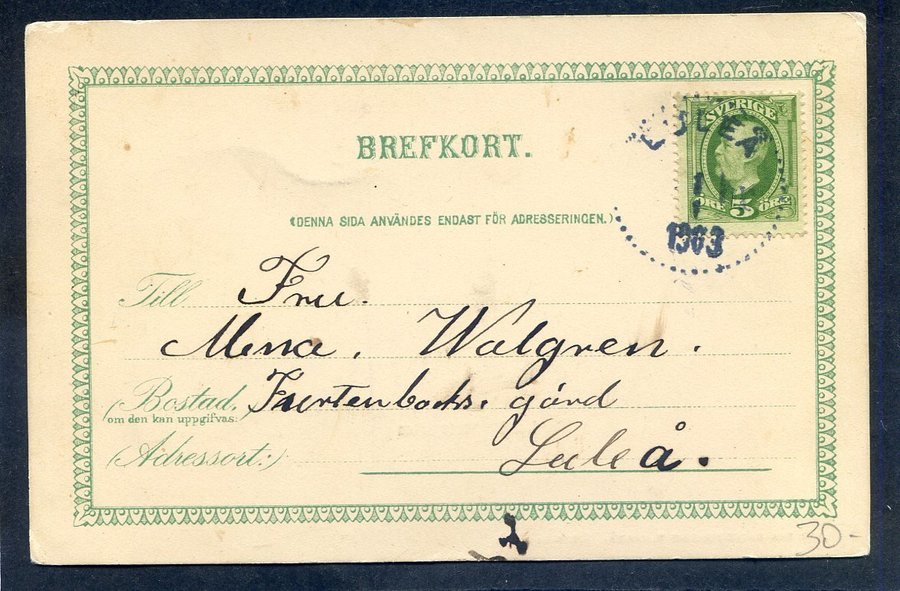 BREFKORT.
(DENNA SIDA ANVÄNDES ENDAST FÖR ADRESSERINGEN.)
SVERIGE
ÖRE 5 ÖRE
LULEÅ
1903
Till Fru.
Mena. Walgren.
(Bostad, gård
om den kan uppgifvas.
(Adressort:) Luleå.
30-